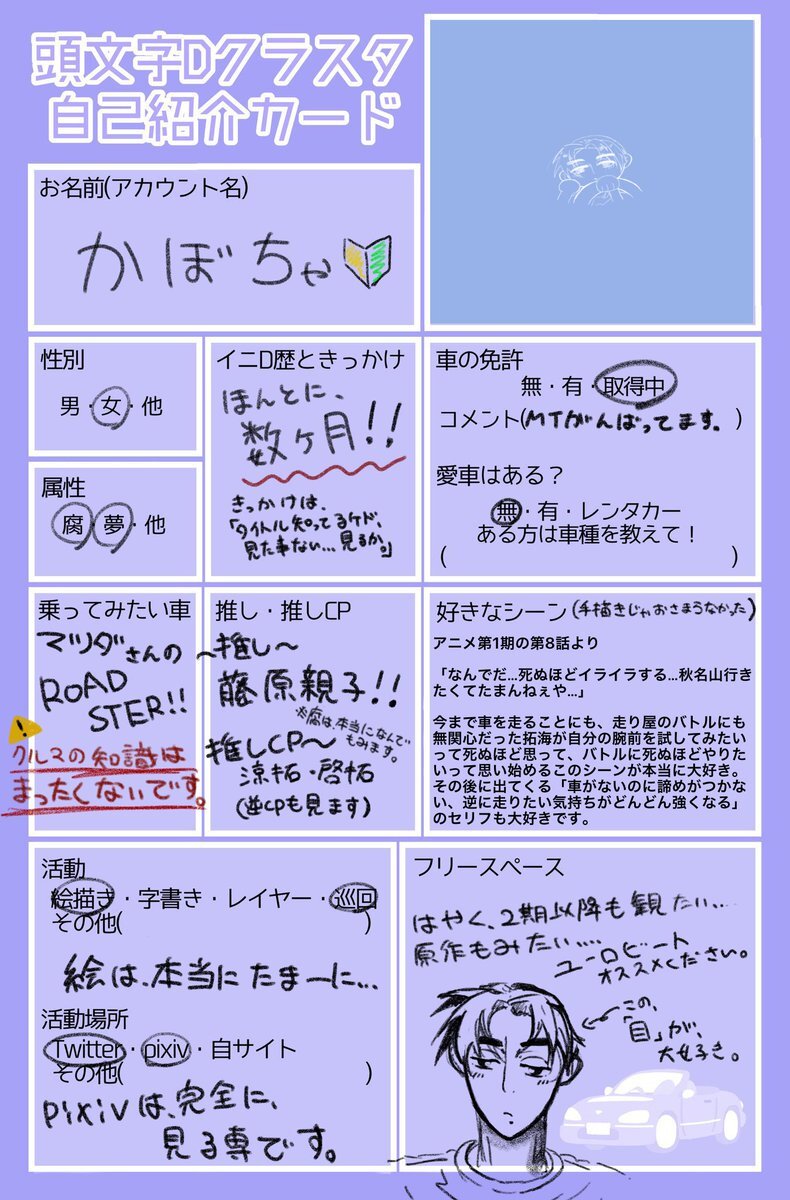 頭文字Dクラスタ
自己紹介カード
お名前(アカウント名)
かぼちゃ
性別
男・女・他
属性
腐・夢・他
イニD歴ときっかけ
ほんとに、
数ヶ月!!
きっかけは、
「タイトル知ってるケド、
見た事ない…見るか。」
車の免許
無・有・取得中
コメント(MTがんばってます。)
愛車はある？
無・有・レンタカー
ある方は車種を教えて！
( )
乗ってみたい車
マツダさんの
ROAD
STER!!
クルマの知識は
まったくないです。
推し・推しCP
〜推し〜
藤原親子!!
※腐は、本当になんで
もみます。
推しCP〜
涼拓・啓拓
(逆CPも見ます)
好きなシーン(手描きじゃおさまらなかった)
アニメ第1期の第8話より
「なんでだ…死ぬほどイライラする…秋名山行き
たくてたまんねぇや…」
今まで車を走ることにも、走り屋のバトルにも
無関心だった拓海が自分の腕前を試してみたい
って死ぬほど思って、バトルに死ぬほどやりた
いって思い始めるこのシーンが本当に大好き。
その後に出てくる「車がないのに諦めがつかな
い、逆に走りたい気持ちがどんどん強くなる」
のセリフも大好きです。
活動
絵描き・字書き・レイヤー・巡回
その他( )
絵は、本当にたまーに…
活動場所
Twitter・pixiv・自サイト
その他( )
pixivは、完全に、
見る専です。
フリースペース
はやく、2期以降も観たい…
原作もみたい….
ユーロビート
オススメください。
この、
「目」が、
大好き。